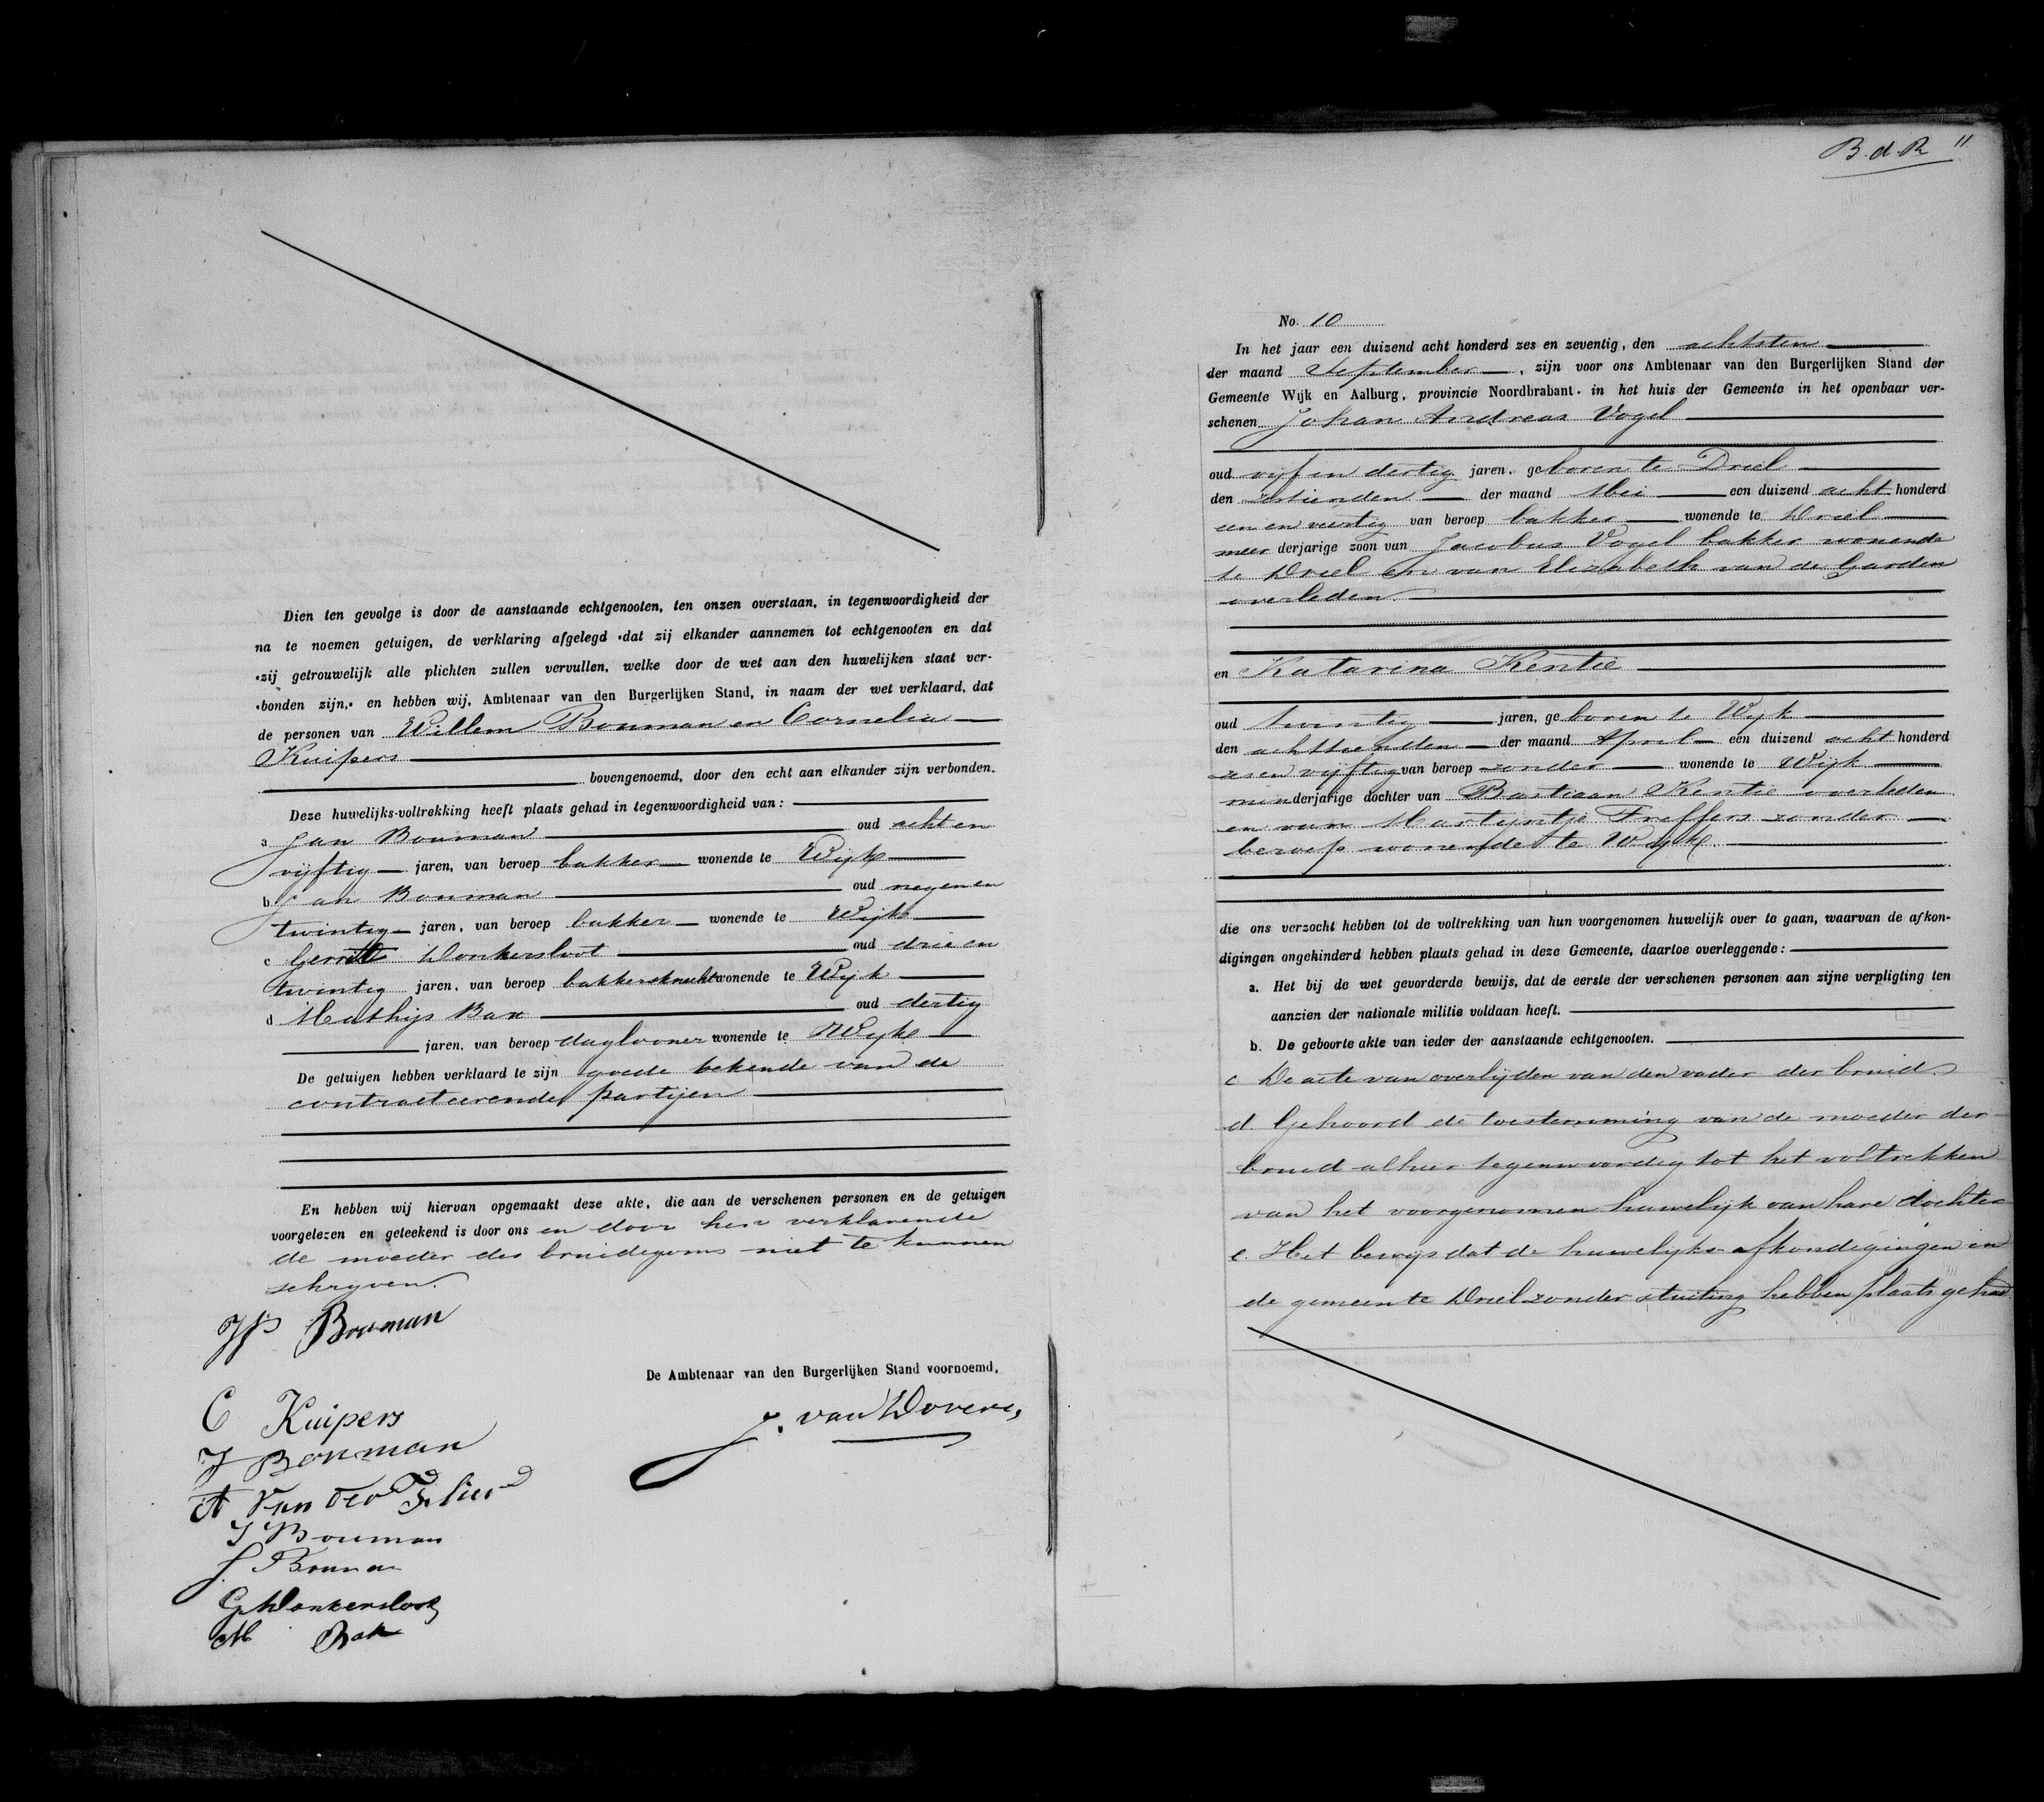 Dien ten gevolge is door de aanstaande echtgenooten, ten onzen overstaan, in tegenwoordigheid der
na te noemen getuigen, de verklaring afgelegd •dat zij elkander aannemen tot echtgenooten en dat
•zij getrouwelijk alle plichten zullen vervullen, welke door de wet aan den huwelijken staat ver-
•bonden zijn,• en hebben wij, Ambtenaar van den Burgerlijken Stand, in naam der wet verklaard, dat
de personen van Willem Bouman en Cornelia
Kuipers
bovengenoemd, door den echt aan elkander zijn verbonden.
Deze huwelijks-voltrekking heeft plaats gehad in tegenwoordigheid van:
a Jan Bouman oud acht en
vijftig jaren, van beroep bakker wonende te Wijk
b Jan Bouman oud negen en
twintig jaren, van beroep bakker wonende te Wijk
c Gerrit Donkersloot oud drie en
twintig jaren, van beroep bakkersknecht wonende te Wijk
d Mathijs Bax oud dertig
jaren, van beroep daglooner wonende te Wijk
De getuigen hebben verklaard te zijn goede bekende van de
contracteerende partijen
En hebben wij hiervan opgemaakt deze akte, die aan de verschenen personen en de getuigen
voorgelezen en geteekend is door ons en door hen verklarende
de moeder des bruidegoms niet te kunnen
schrijven.
W Bouman
De Ambtenaar van den Burgerlijken Stand voornoemd,
J. van Dovere
C Kuipers
J Bouman
A Van der
J Bouman
J. Bouman
G Donkersloot
M Bax
B.d.R 11
No. 10
In het jaar een duizend acht honderd zes en zeventig, den achtsten
der maand September, zijn voor ons Ambtenaar van den Burgerlijken Stand der
Gemeente Wijk en Aalburg, provincie Noordbrabant, in het huis der Gemeente in het openbaar ver-
schenen Johan Andreas Vogel
oud vijf en dertig jaren, geboren te Driel
den zestienden der maand Mei een duizend acht honderd
een en veertig van beroep bakker wonende te Driel
meerderjarige zoon van Jacobus Vogel bakker wonende
te Driel en van Elizabeth van de Garden
overleden.
en Katarina Kentie
oud twintig jaren, geboren te Wijk
den achttienden der maand April een duizend acht honderd
zes en vijftig van beroep zonder wonende te Wijk
minderjarige dochter van Bastiaan Kentie overleden
en van Martijntje Treffers zonder
beroep wonende te Wijk
die ons verzocht hebben tot de voltrekking van hun voorgenomen huwelijk over te gaan, waarvan de afkon-
digingen ongehinderd hebben plaats gehad in deze Gemeente, daartoe overleggende:
a. Het bij de wet gevorderde bewijs, dat de eerste der verschenen personen aan zijne verpligting ten
aanzien der nationale militie voldaan heeft.
b. De geboorte akte van ieder der aanstaande echtgenooten.
c De acte van overlijden van den vader der bruid.
d. Gehoord de toestemming van de moeder der
bruid alhier tegenwoordig tot het voltrekken
van het voorgenomen huwelijk van hare dochter
e. Het bewijs dat de huwelijks afkondigingen in
de gemeente Driel zonder stuiting hebben plaats gehad